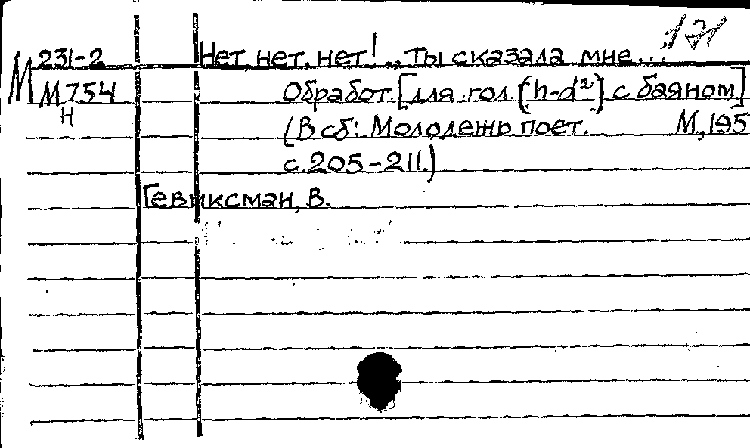 171
М 231-2 Нет, нет, нет! „Ты сказала мне...
М754 Обработ. [для гол. (h-d²) с баяном]
Н (В сб: Молодежь поет. М, 195
с.205-211.)
Гевиксман, В.